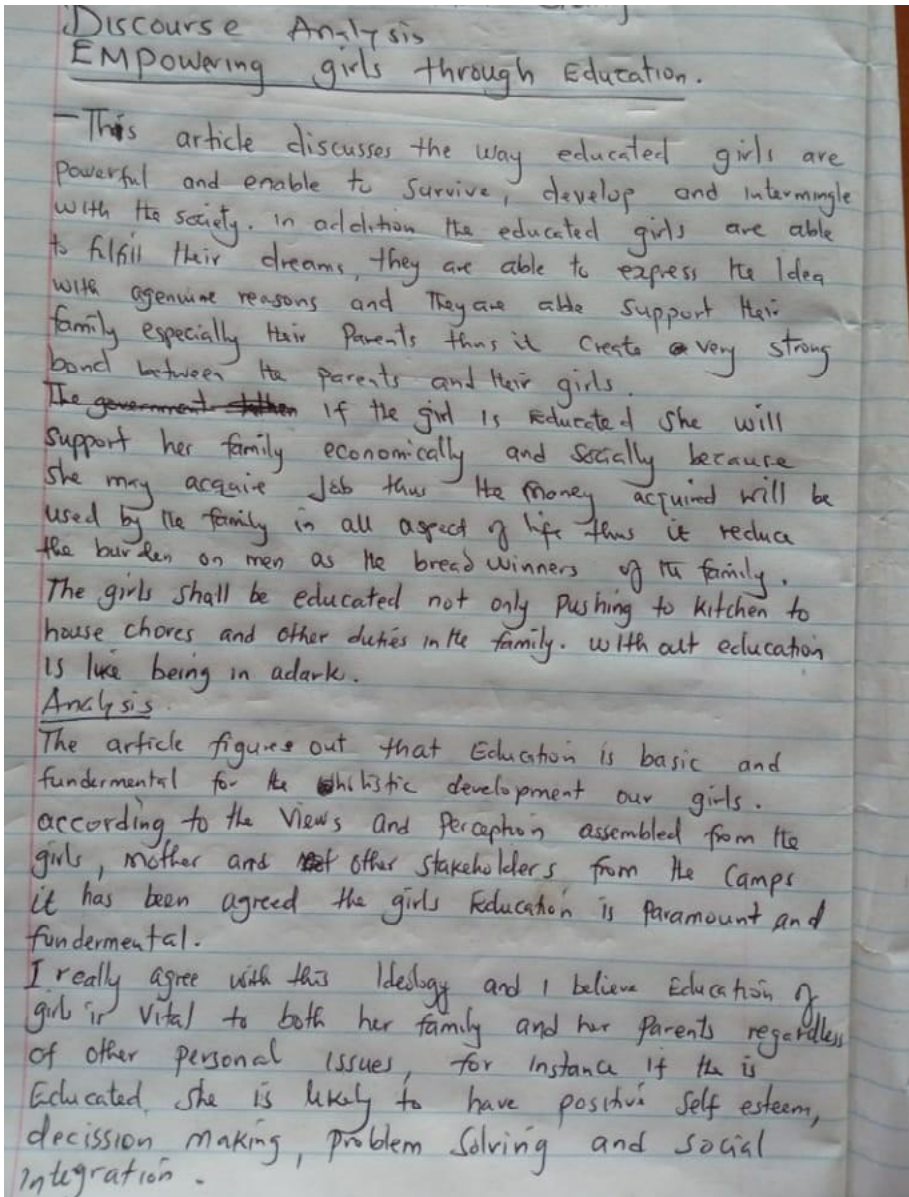 Discourse Analysis
EMPowering girls through Education.
- This article discusses the way educated girls are
powerful and enable to survive, develop and intermingle
with the society. in addition the educated girls are able
to fulfill their dreams, they are able to express the Idea
with agenuine reasons and They are able support their
family especially their Parents thus it create a very strong
bond between the parents and their girls.
The government if the girl is Educated she will
support her family economically and socially because
she may acquire Job thus the money acquired will be
used by the family in all aspect of life thus it reduce
the burden on men as the bread winners of the family.
The girls shall be educated not only pushing to kitchen to
house chores and other duties in the family. without education
is like being in adark.
Analysis
The article figures out that Education is basic and
fundermental for the holistic development our girls.
according to the Views and Perception assembled from the
girls, mother and other stakeholders from the Camps
it has been agreed the girls Education is Paramount and
fundermental.
I really agree with this Ideology and I believe Education of
girl is vital to both her family and her Parents regardless
of other personal issues, for instance if the is
Educated she is likely to have positive Self esteem,
decission making, problem solving and social
integration.